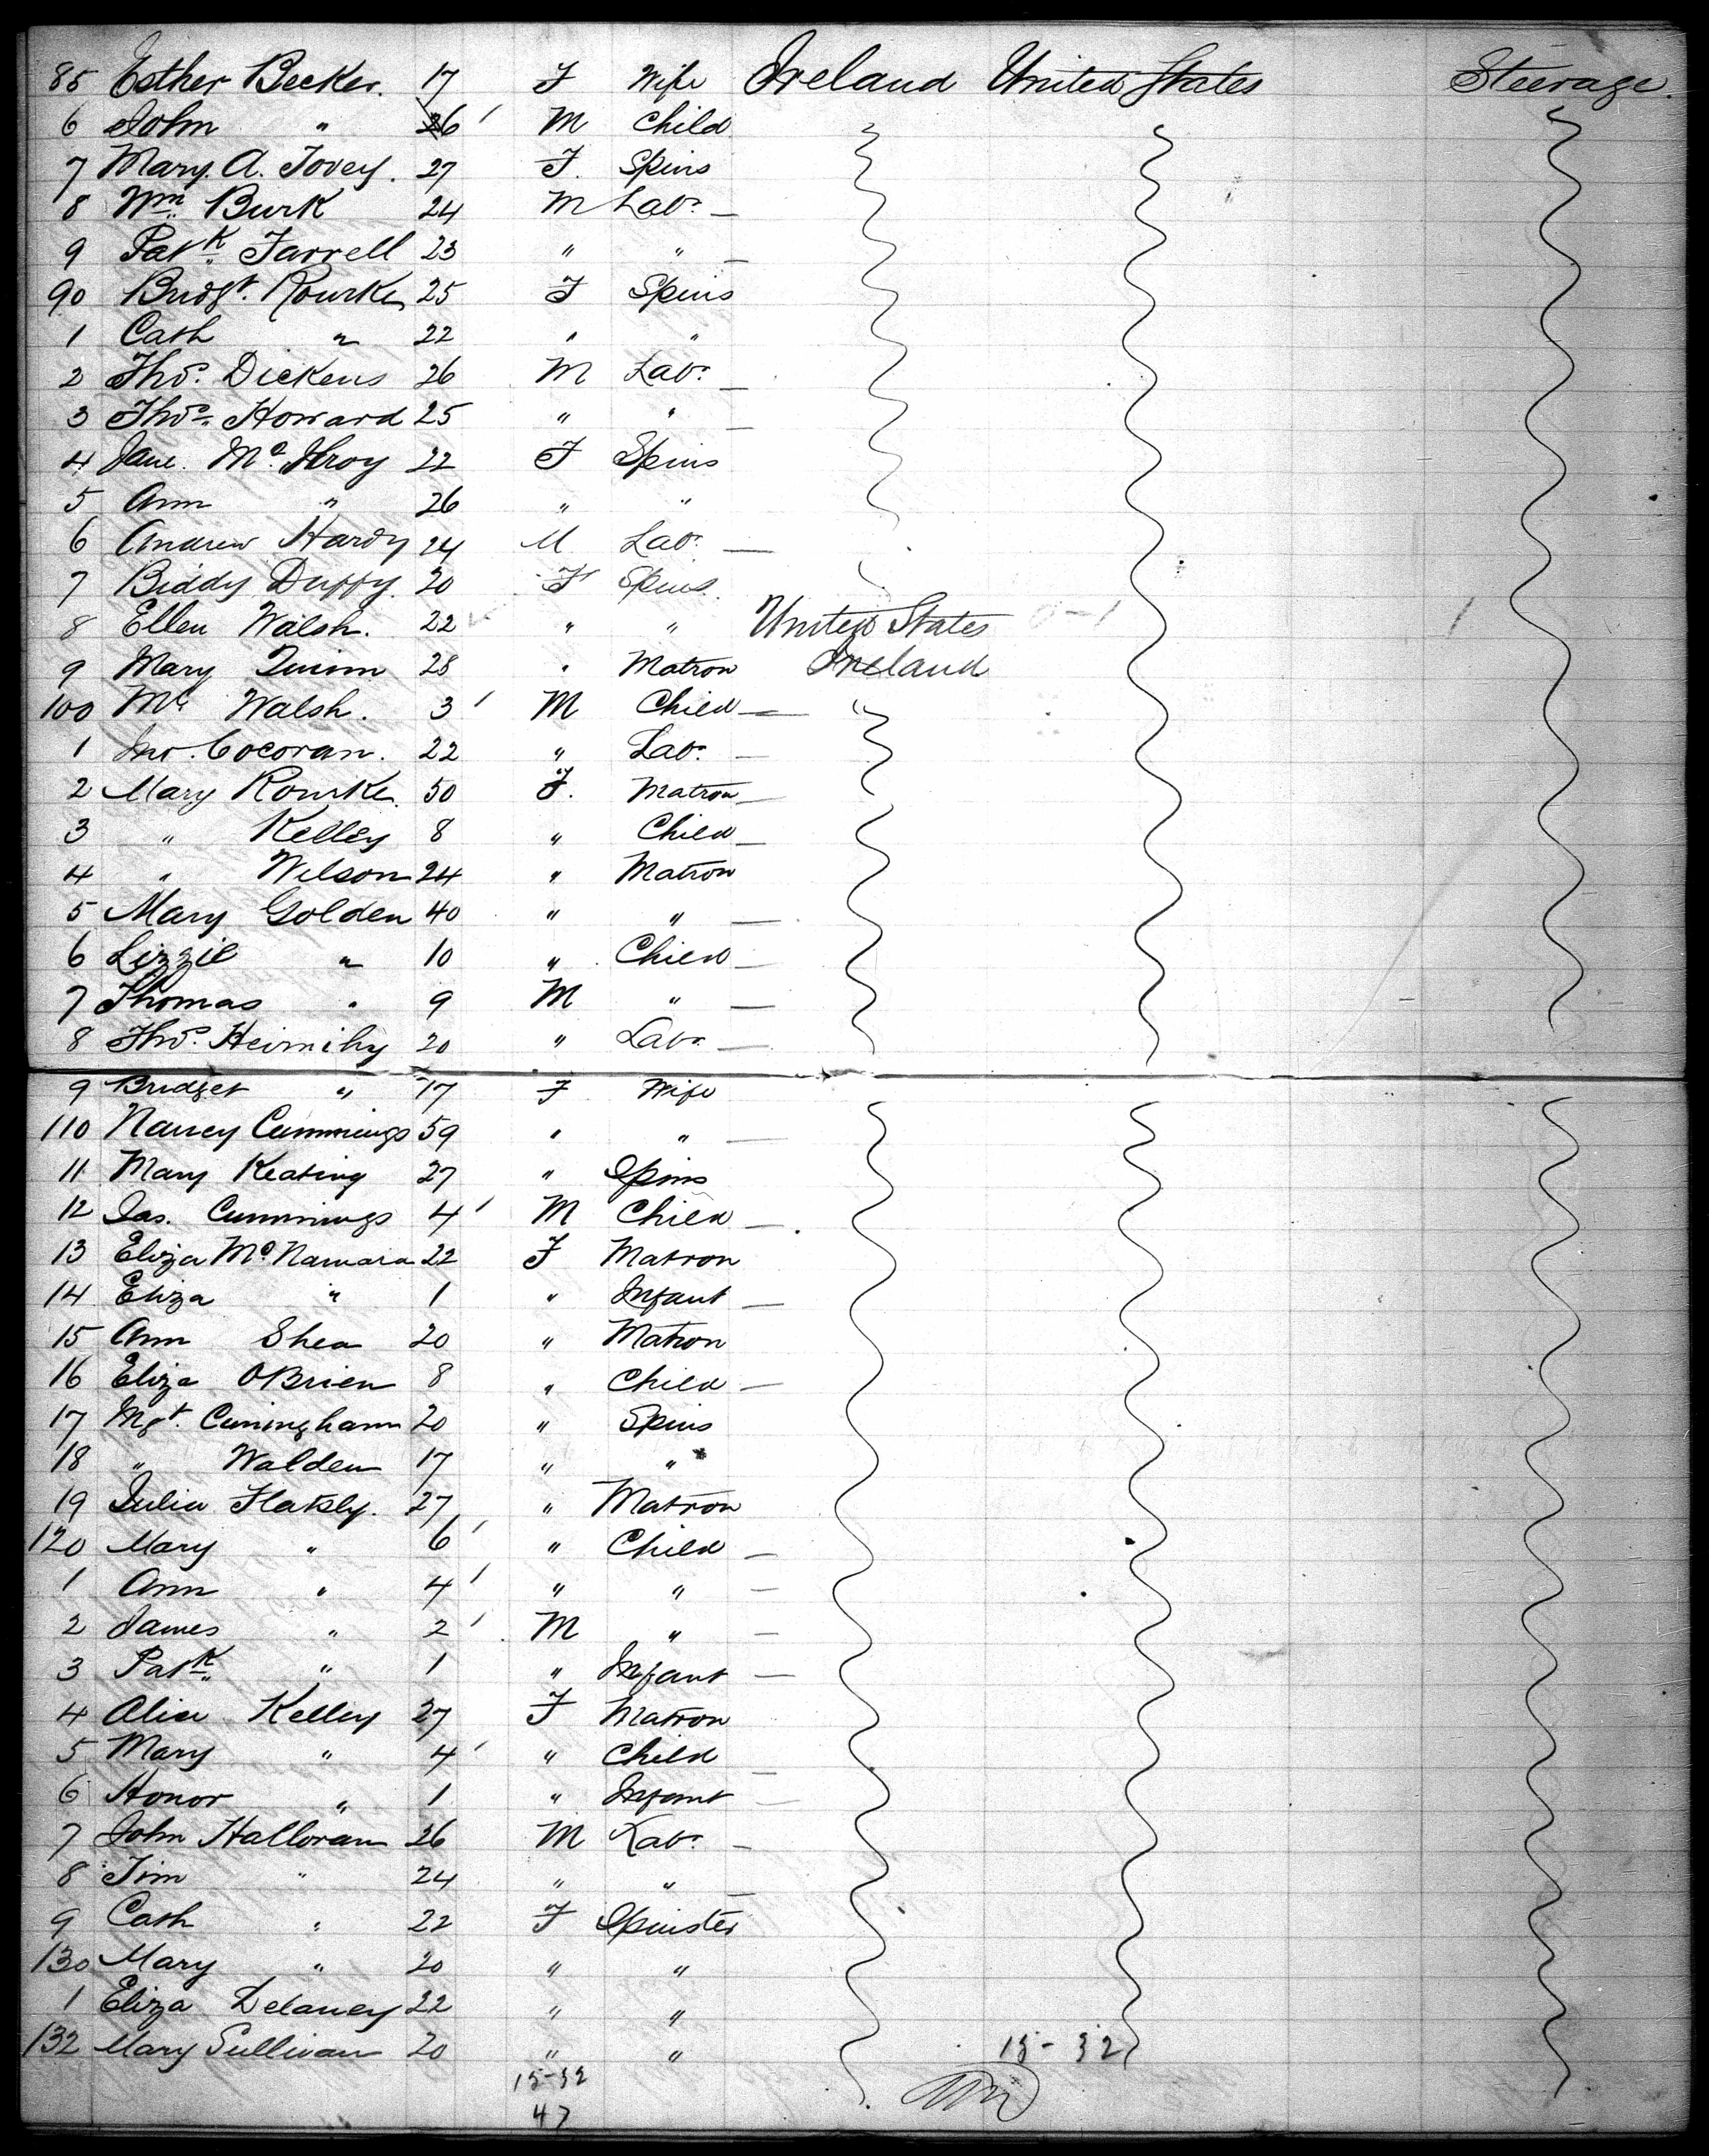 85 Esther Becker. 17 F Wife Ireland United States Steerage.
6 John " 6 ' M Child
7 Mary. A. Tovey. 27 F. Spins
8 Wm Burk 24 M Labr
9 Patk Farrell 23 " "
90 Bridgt. Rourke 25 F Spins
1 Cath " 22 " "
2 Thos. Dickens 26 M Labr.
3 Thos. Howard 25 " "
4 Jane. McIlroy 22 F Spins
5 Ann " 26 " "
6 Andrew Hardy 24 M Labr.
7 Biddy Duffy. 20 F Spins.
8 Ellen Walsh. 22 " " United States 0-1 /
9 Mary Quinn 28 " Matron Ireland
100 Walsh. 3 ' M Child
1 Jno. Cocoran. 22 " Labr.
2 Mary Rourke. 50 F. Matron
3 " Kelley 8 " Child
4 " Wilson 24 " Matron
5 Mary Golden 40 " "
6 Lizzie " 10 " Child
7 Thomas " 9 M "
8 Thos. 20 " Labr
9 Bridget " 17 F Wife
110 Nancy Cummings 59 " "
11 Mary Keating 27 " Spins
12 Jas. Cummings 4 ' M Child
13 Eliza McNamara 22 F Matron
14 Eliza " 1 " Infant
15 Ann Shea 20 " Matron
16 Eliza OBrien 8 " Child
17 Mgt. Cuningham 20 " Spins
18 " Walden 17 " "
19 Julia Flakly. 27 " Matron
120 Mary " 6 ' " Child
1 Ann " 4 ' " "
2 James " 2 ' M "
3 Patk " 1 " Infant
4 Alice Kelley 27 F Matron
5 Mary " 4 ' " Child
6 Honor " 1 " Infant
7 John Halloran 26 M Labr.
8 Tim " 24 " "
9 Cath " 22 F Spinster
130 Mary " 20 " "
1 Eliza Delaney 22 " "
132 Mary Sullivan 20 " " 15-32
15-32
47